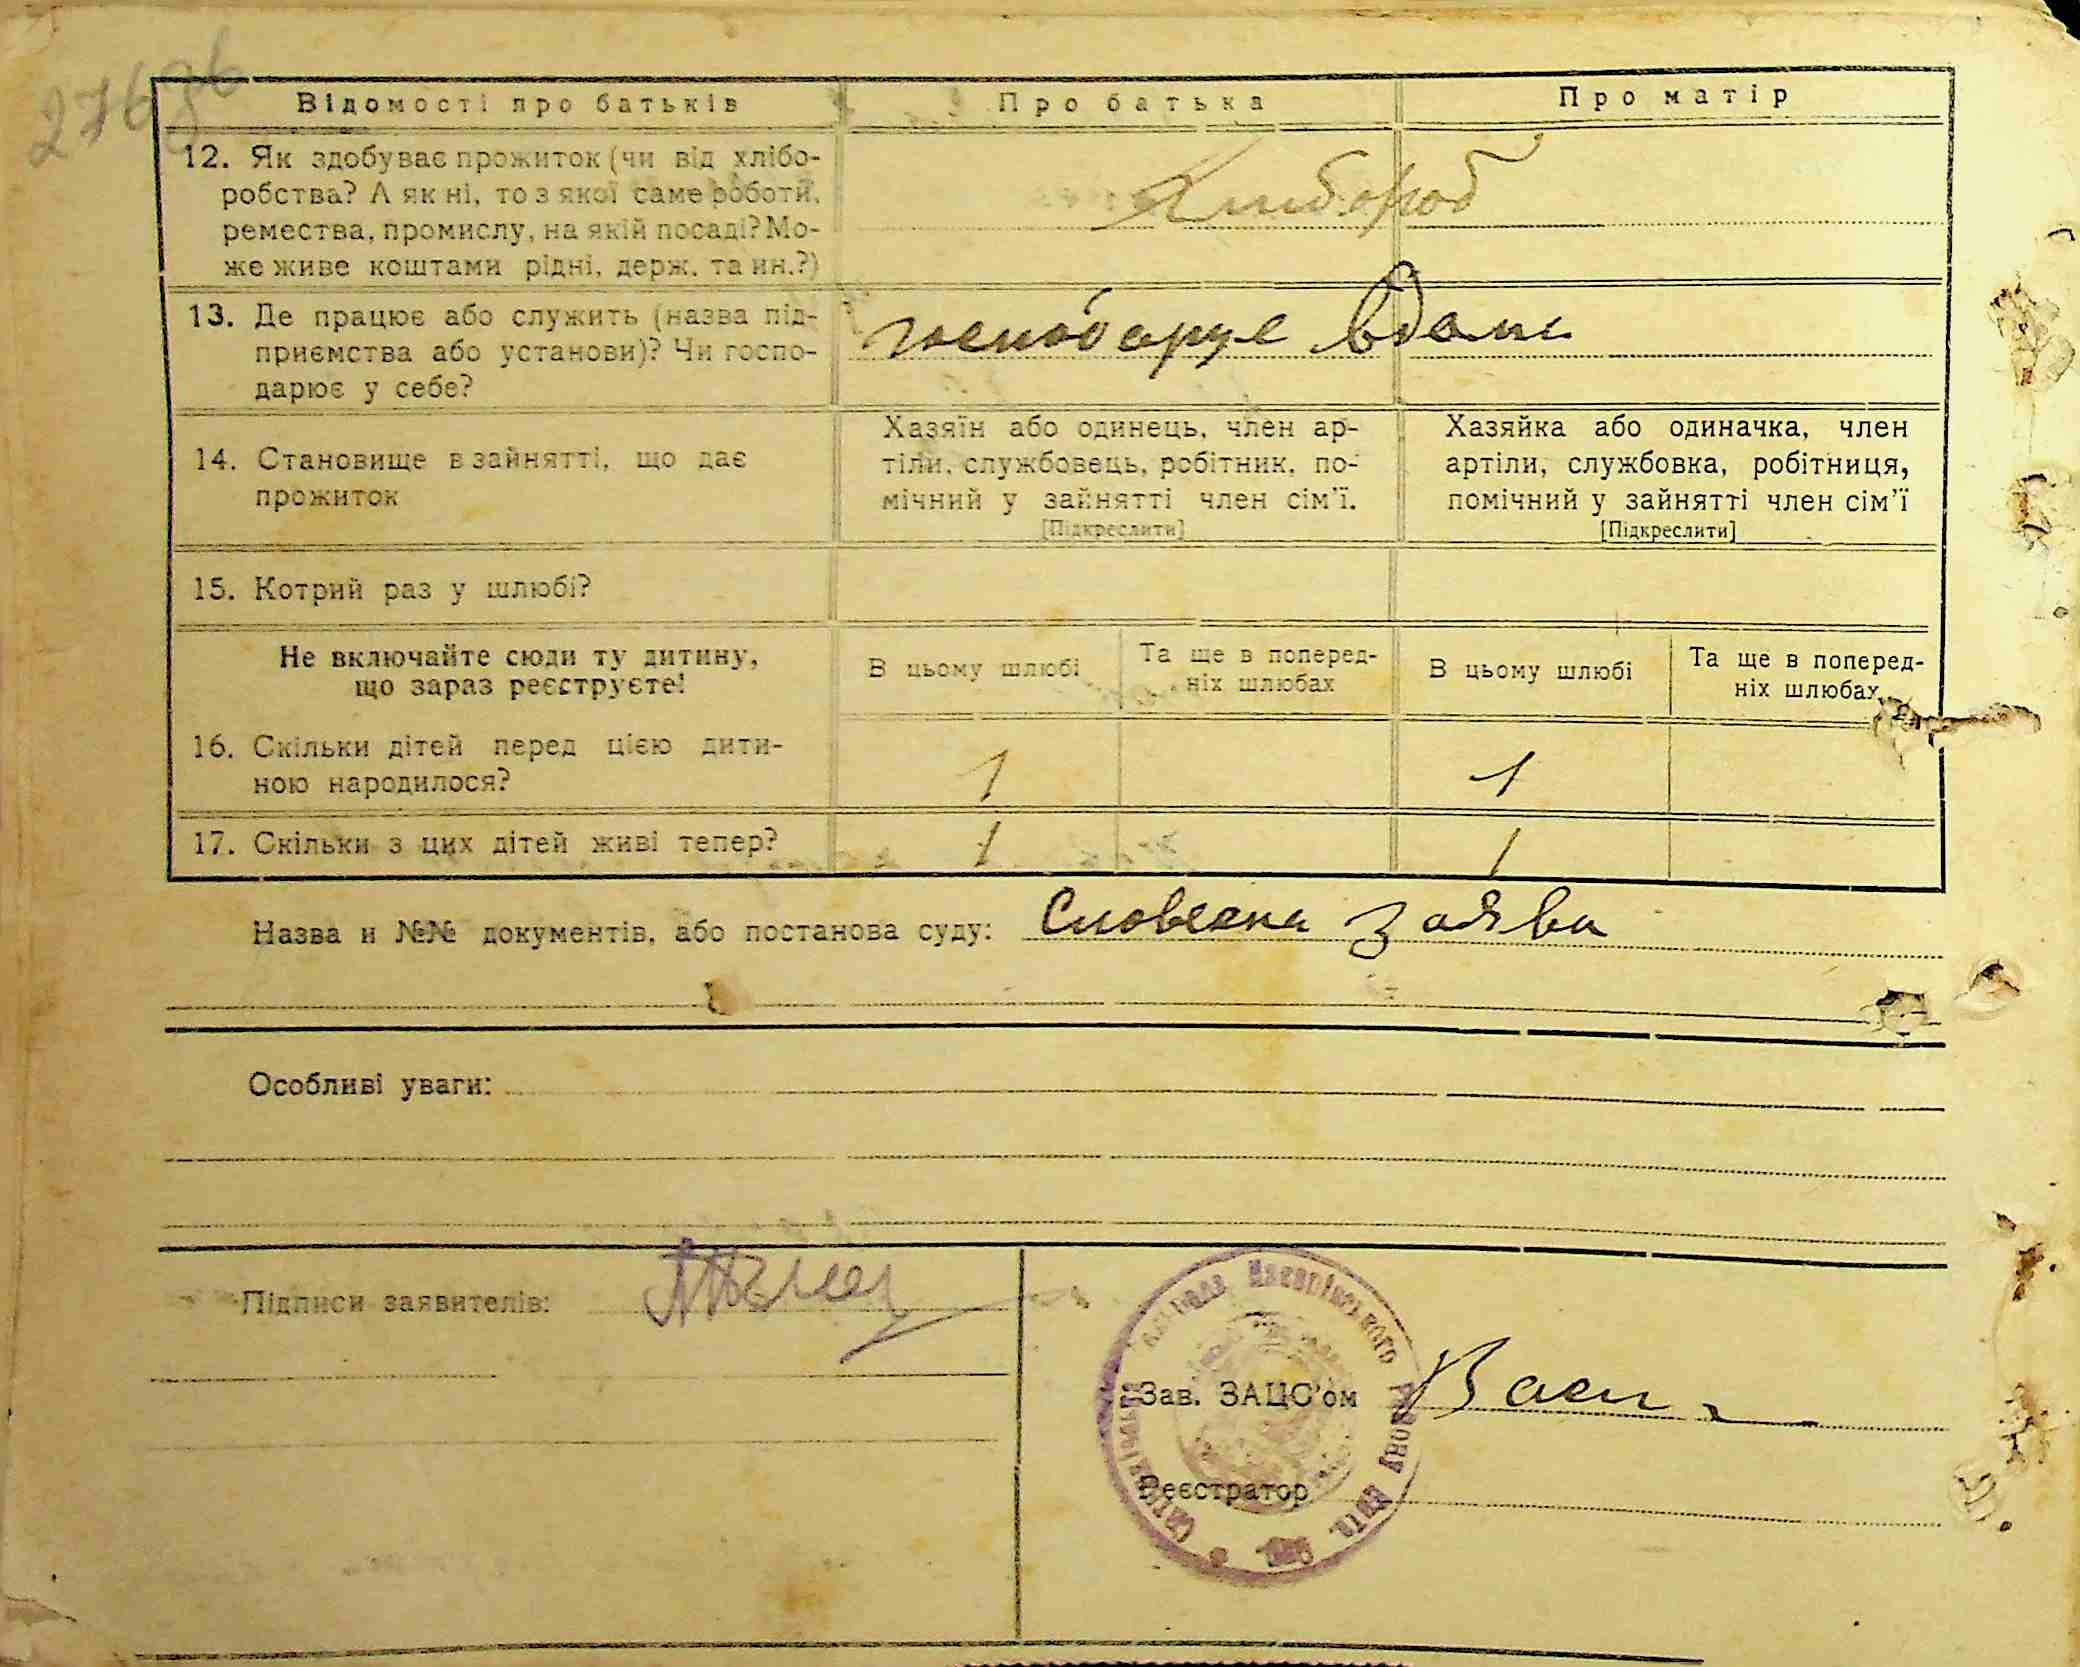 276зв
Відомості про батьків
Про батька
Про матір
12. Як здобуває прожиток (чи від хлібо-
робства? А як ні, то з якої саме роботи,
ремества, промислу, на якій посаді? Мо-
же живе коштами рідні, держ. та ин.?)
Хлибороб
13. Де працює або служить (назва під-
приємства або установи)? Чи госпо-
дарює у себе?
господарує вдома
14. Становище в зайнятті, що дає
прожиток
Хазяїн або одинець, член ар-
тіли, службовець, робітник, по-
мічний у зайнятті член сім'ї.
[Підкреслити]
Хазяйка або одиначка, член
артіли, службовка, робітниця,
помічний у зайнятті член сім'ї
[Підкреслити]
15. Котрий раз у шлюбі?
Не включайте сюди ту дитину,
що зараз реєструєте!
В цьому шлюбі
Та ще в поперед-
ніх шлюбах
В цьому шлюбі
Та ще в поперед-
ніх шлюбах
16. Скільки дітей перед цією дити-
ною народилося?
1 1
17. Скільки з цих дітей живі тепер?
1 1
Назва и №№ документів, або постанова суду: Словесна заява
Особливі уваги:
Підписи заявителів:
Зав. ЗАЦС'ом
Реєстратор